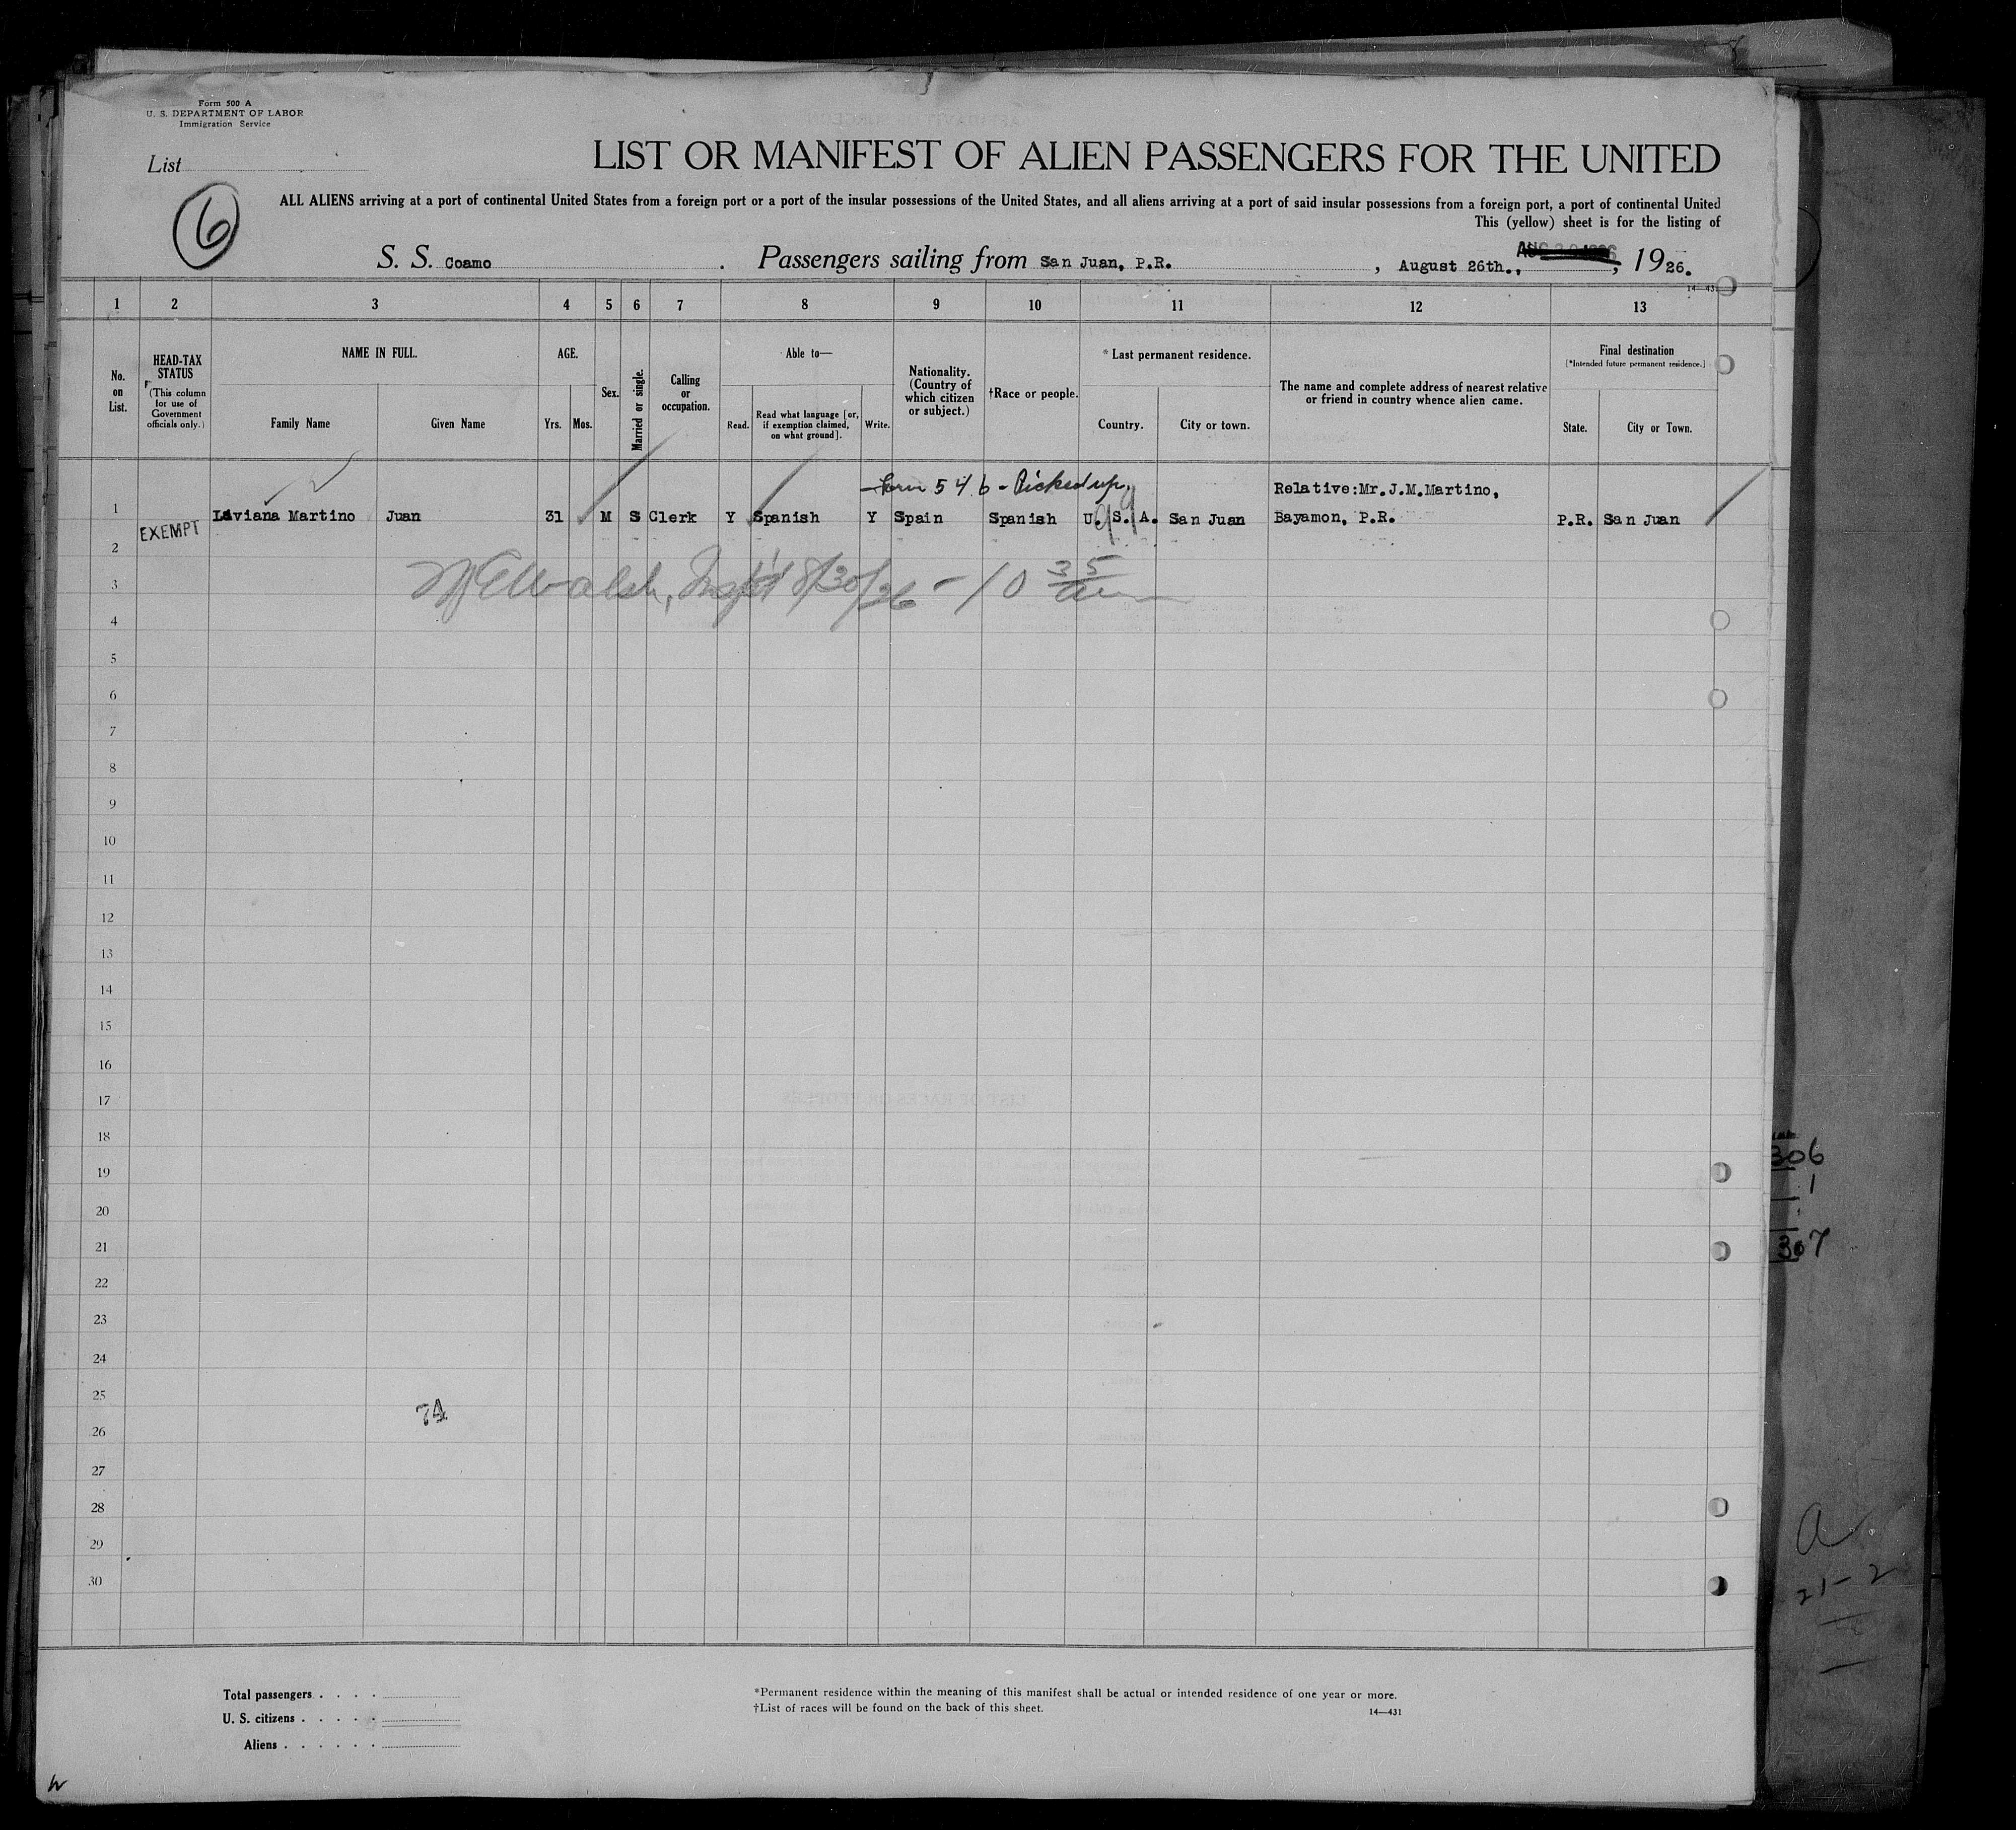 Form 500 A
U. S. DEPARTMENT OF LABOR
Immigration Service
List
6
LIST OR MANIFEST OF ALIEN PASSENGERS FOR THE UNITED
ALL ALIENS arriving at a port of continental United States from a foreign port or a port of the insular possessions of the United States, and all aliens arriving at a port of said insular possessions from a foreign port, a port of continental United
This (yellow) sheet is for the listing of
S. S. Coamo . Passengers sailing from San Juan, P.R. , August 26th., , 1926.
14—431
1 2 3 4 5 6 7 8 9 10 11 12 13
No. on List.
HEAD-TAX STATUS
(This column for use of Government officials only.)
NAME IN FULL.
Family Name
Given Name
AGE.
Yrs.
Mos.
Sex.
Married or single.
Calling or occupation.
Able to—
Read.
Read what language [or, if exemption claimed, on what ground].
Write.
Nationality. (Country of which citizen or subject.)
†Race or people.
*Last permanent residence.
Country.
City or town.
The name and complete address of nearest relative or friend in country whence alien came.
Final destination
[*Intended future permanent residence.]
State.
City or Town.
Form 546 - Picked up.
Relative:Mr.J.M.Martino,
1 EXEMPT Laviana Martino Juan 31 M S Clerk Y Spanish Y Spain Spanish U.S.A. San Juan Bayamon, P.R. P.R. San Juan
2
3 Walsh, 8/30/26 - 10 35
4
5
6
7
8
9
10
11
12
13
14
15
16
17
18
19
20
21
22
23
24
25
74
26
27
28
29
30
306
1
307
21-2
Total passengers
U. S. citizens
Aliens
*Permanent residence within the meaning of this manifest shall be actual or intended residence of one year or more.
†List of races will be found on the back of this sheet.
14—431